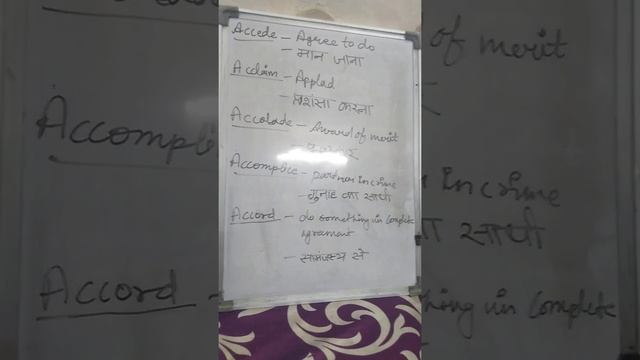 Accede - Agree to do
- मान जाना
Acclaim - Applad
- प्रशंसा करना
Accolade - Award of merit
Accomplice - partner in crime
- गुनाह का साथी
Accord - do something in complete
agreement
- सामंजस्य से